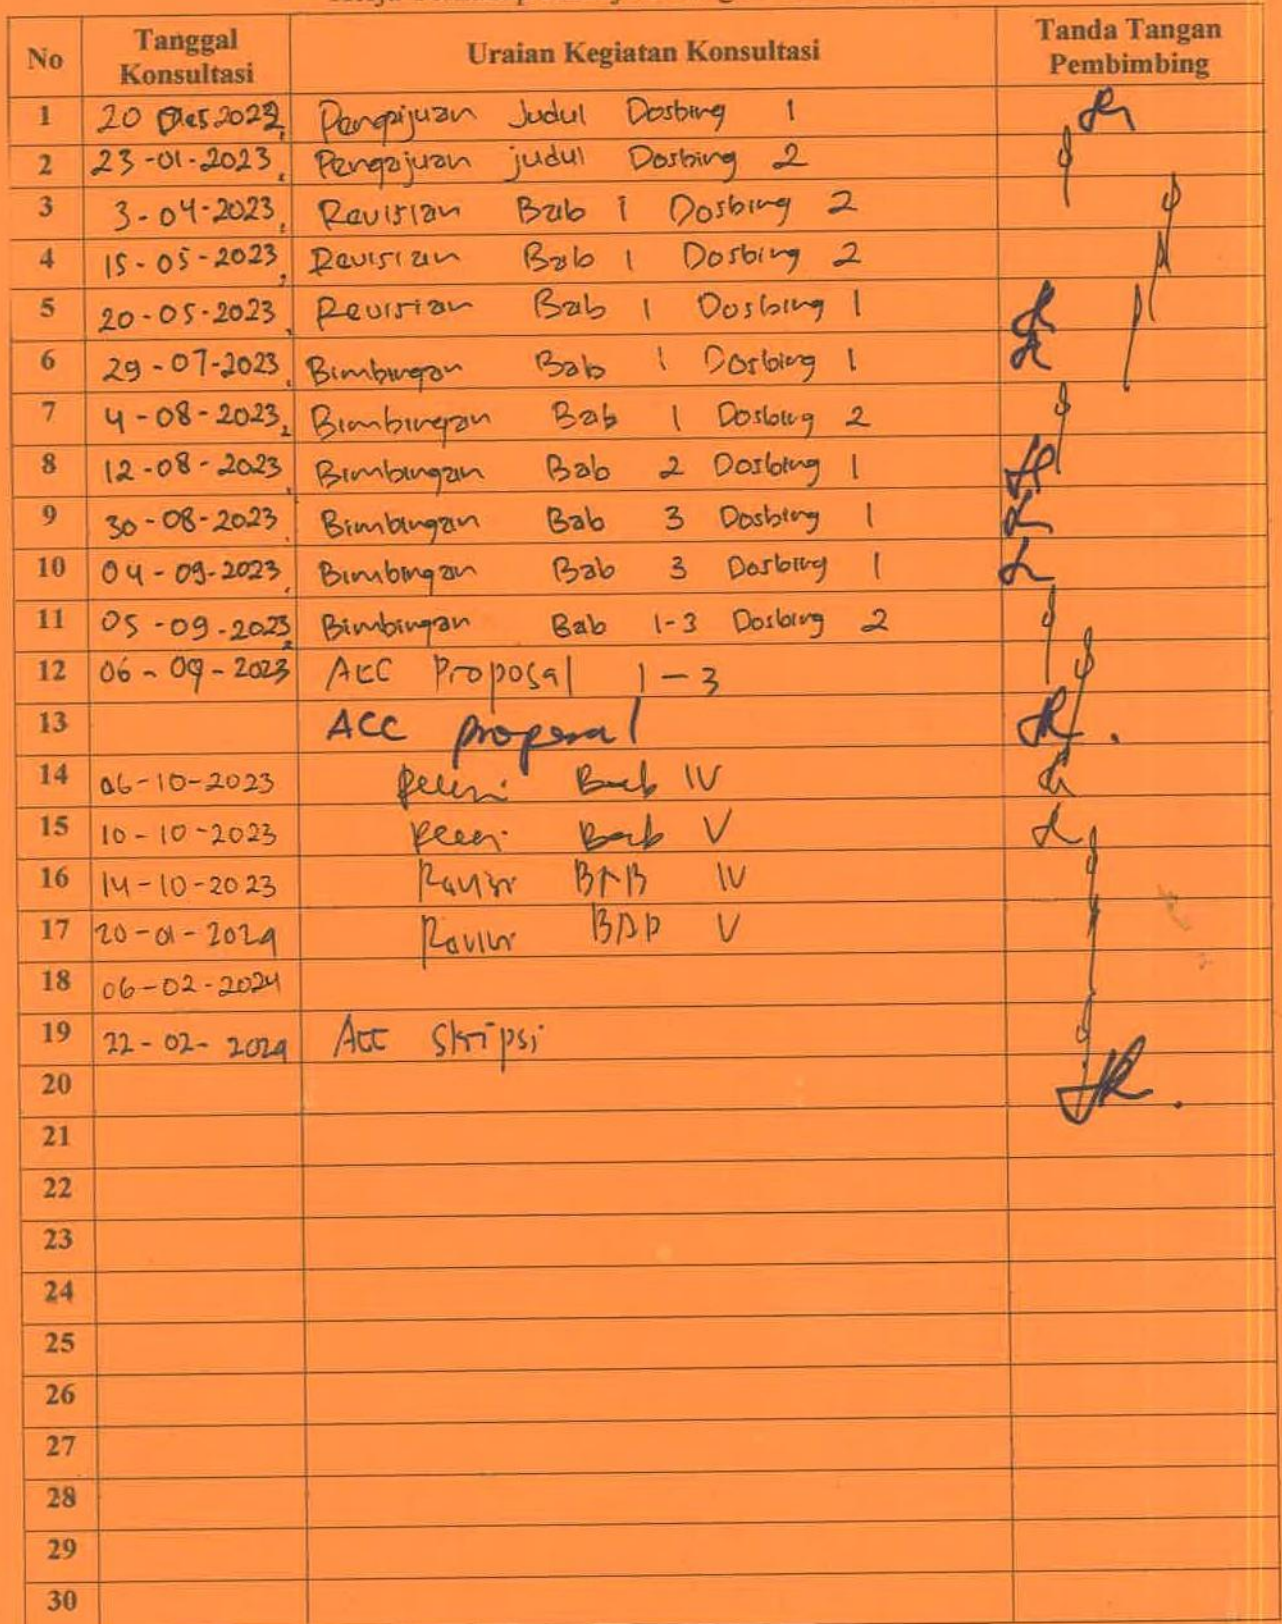 No Tanggal Konsultasi Uraian Kegiatan Konsultasi Tanda Tangan Pembimbing
1 20 Des 2022, Pengajuan Judul Dosbing 1
2 23-01-2023, Pengajuan judul Dosbing 2
3 3-04-2023, Revisian Bab 1 Dosbing 2
4 15-05-2023, Revisian Bab 1 Dosbing 2
5 20-05-2023, Revisian Bab 1 Dosbing 1
6 29-07-2023, Bimbingan Bab 1 Dosbing 1
7 4-08-2023, Bimbingan Bab 1 Dosbing 2
8 12-08-2023, Bimbingan Bab 2 Dosbing 1
9 30-08-2023, Bimbingan Bab 3 Dosbing 1
10 04-09-2023, Bimbingan Bab 3 Dosbing 1
11 05-09-2023, Bimbingan Bab 1-3 Dosbing 2
12 06-09-2023 ACC Proposal 1-3
13 ACC proposal
14 06-10-2023 Revisi Bab IV
15 10-10-2023 Revisi Bab V
16 14-10-2023 Revisi BAB IV
17 20-01-2024 Revisi BAB V
18 06-02-2024
19 22-02-2024 ACC Skripsi
20
21
22
23
24
25
26
27
28
29
30